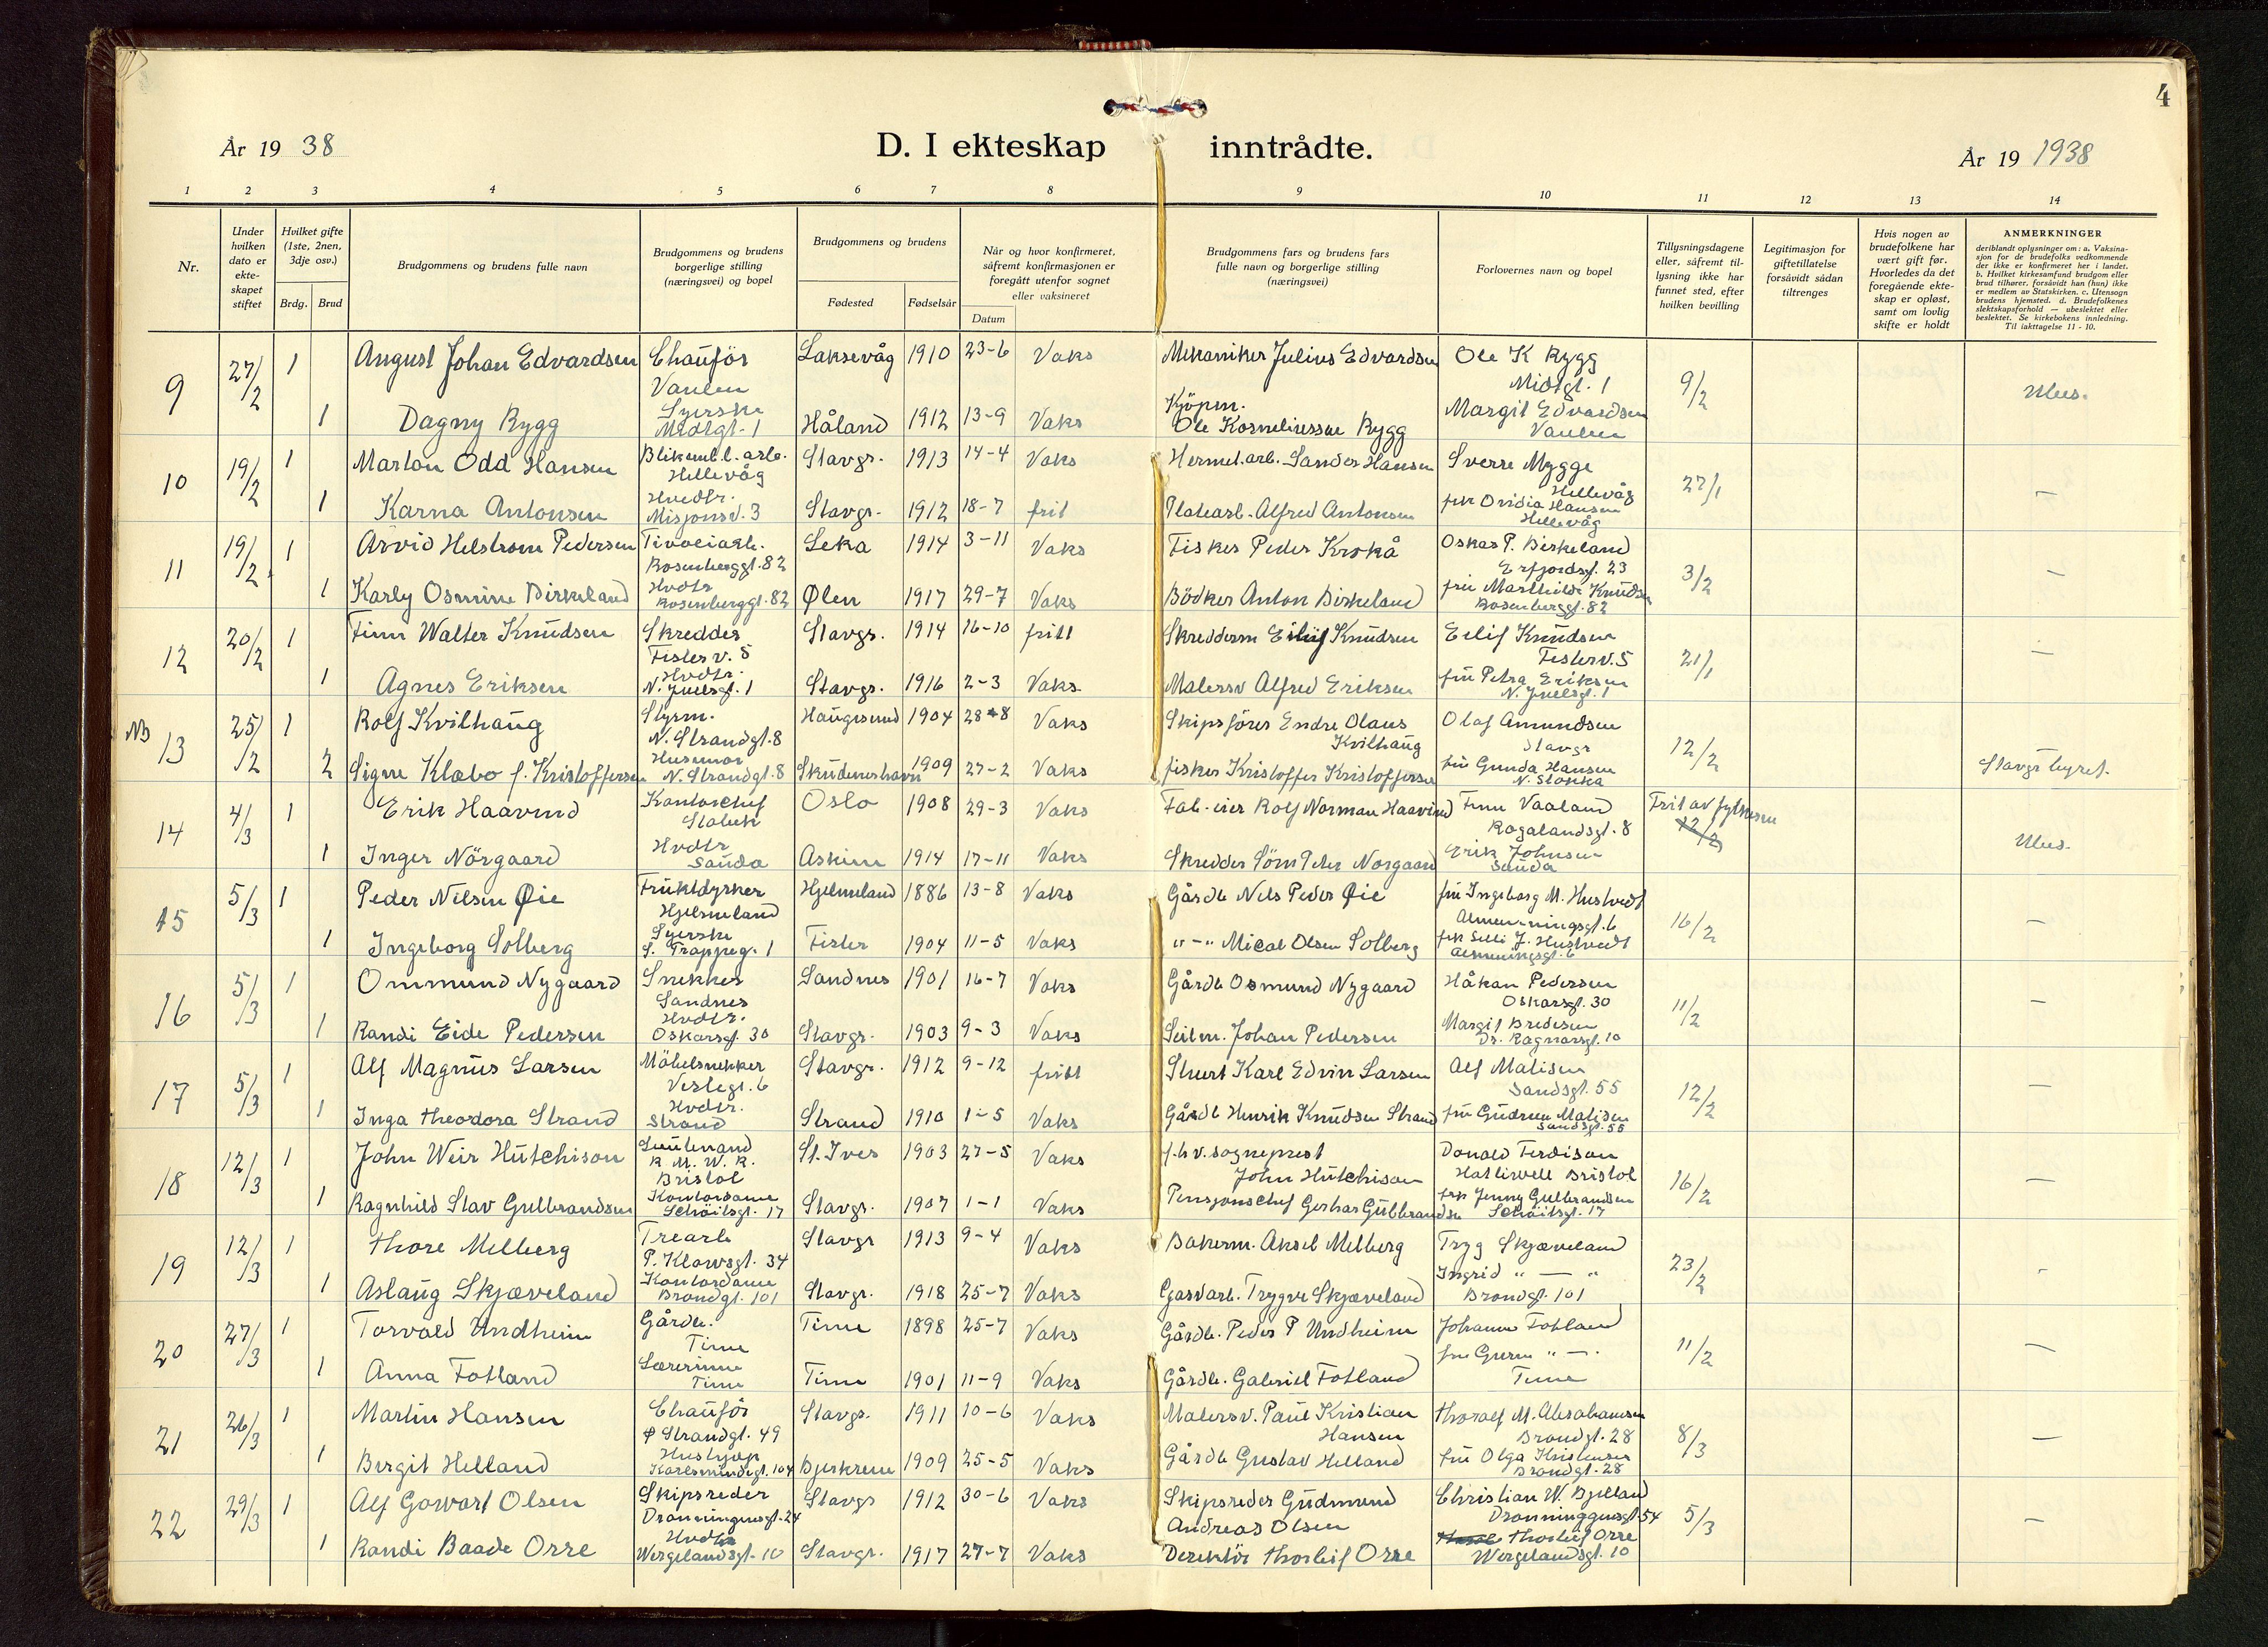 4
År 19 38
D. I ekteskap inntrådte.
År 19 1938
1 2 3 4 5 6 7 8 9 10 11 12 13 14
Nr.
Under hvilken dato er ekte-skapet stiftet
Hvilket gifte (1ste, 2nen, 3dje osv.)
Brdg. Brud
Brudgommens og brudens fulle navn
Brudgommens og brudens borgerlige stilling (næringsvei) og bopel
Brudgommens og brudens
Fødested Fødselsår
Når og hvor konfirmeret, såfremt konfirmasjonen er foregått utenfor sognet eller vaksineret
Datum
Brudgommens fars og brudens fars fulle navn og borgerlige stilling (næringsvei)
Forlovernes navn og bopel
Tillysningsdagene eller, såfremt til-lysning ikke har funnet sted, efter hvilken bevilling
Legitimasjon for giftetillatelse forsåvidt sådan tiltrenges
Hvis nogen av brudefolkene har vært gift før. Hvorledes da det foregående ekte-skap er opløst, samt om lovlig skifte er holdt
ANMERKNINGER
deriblandt oplysninger om: a. Vaksina-sjon for de brudefolks vedkommende der ikke er konfirmeret her i landet. b. Hvilket kirkesamfund brudgom eller brud tilhører, forsåvidt han (hun) ikke er medlem av Statskirken. c. Utensogn brudens hjemsted. d. Brudefolkenes slektskapsforhold — ubeslektet eller beslektet. Se kirkebokens innledning. Til iakttagelse 11 - 10.
9 27/2 1 August Johan Edvardsen Chauför Vaulen Laksevåg 1910 23-6 Vaks Mekaniker Julius Edvardsen Ole K Rygg Midtgt. 1 9/2
1 Dagny Rygg Syerske Midtgt. 1 Håland 1912 13-9 Vaks Kjöpm. Ole Korneliussen Rygg Margit Edvardsen Vaulen
10 19/2 1 Marton Odd Hansen Blikemb.l. arb. Hillevåg Stavgr. 1913 14-4 Vaks Hermet.arb. Sander Hansen Sverre Mygge Hillevåg 27/1 —
1 Karna Antonsen Husdtr. Misjonsv. 3 Stavgr. 1912 18-7 frit Platearb. Alfred Antonsen frk Ovidia Hansen Hillevåg
11 19/2 1 Arvid Helstrøm Pedersen Tivoliarb. Rosenberggt. 82 Leka 1914 3-11 Vaks Fisker Peder Krokå Oskar P. Birkeland Erfjordsgt. 23 3/2 —
1 Karly Osmine Birkeland Hvdtr Rosenberggt. 82 Ølen 1917 29-7 Vaks Bödker Anton Birkeland fru Marthilde Knudsen Rosenberggt. 82
12 20/2 1 Finn Walter Knudsen Skredder Fisterv. 5 Stavgr. 1914 16-10 fritt Skredderm Eilif Knudsen Eilif Knudsen Fisterv. 5 21/1 —
1 Agnes Eriksen Hvdtr. N. Juelsgt. 1 Stavgr. 1916 2-3 Vaks Malersv Alfred Eriksen fru Petra Eriksen N. Juelsgt. 1
NB 13 25/2 1 Rolf Kvilhaug Styrm. N. Strandgt. 8 Haugesund 1904 28-8 Vaks Skipsförer Endre Olaus Kvilhaug Olaf Amundsen Stavgr 12/2
2 Signe Klæbo f. Kristoffersen Husmor N. Strandgt. 8 Skudeneshavn 1909 27-2 Vaks fisker Kristoffer Kristoffersen fru Gunda Hansen N. Stokka Stavgr byret.
14 4/3 1 Erik Haavind Kontorchef Stabek Oslo 1908 29-3 Vaks Fab-eier Rolf Norman Haavind Finn Vaaland Rogalandsgt. 8 Frit av fylkesm 12/2
1 Inger Nörgaard Hvdtr Sauda Askim 1914 17-11 Vaks Skredder Sörn Peter Norgaard Erik Johnsen Sauda
15 5/3 1 Peder Nilsen Øie Fruktdyrker Hjelmeland Hjelmeland 1886 13-8 Vaks Gårdb Nils Peder Øie fru Ingeborg M. Hustvedt Almenningsgt. 6 16/2 —
1 Ingeborg Solberg Syerske S. Trappeg. 1 Fister 1904 11-5 Vaks "-" Mical Olsen Solberg frk Silli J. Hustvedt Almenningsgt. 6
16 5/3 1 Ommund Nygaard Snekker Sandnes Sandnes 1901 16-7 Vaks Gårdb Osmund Nygaard Håkan Pedersen Oskarsgt. 30 11/2 —
1 Randi Eide Pedersen Hvdtr. Oskarsgt. 30 Stavgr. 1903 9-3 Vaks Seilm. Johan Pedersen Margit Bredesen Dr. Ragnasgt. 10
17 5/3 1 Alf Magnus Larsen Möbelsnekker Veslegt. 6 Stavgr. 1912 9-12 fritt Stuert Karl Edvin Larsen Alf Malisen Sandsgt. 55 12/2 —
1 Inga Theodora Strand Hvdtr. Strand Strand 1910 1-5 Vaks Gårdb Henrik Knudsen Strand fru Gudrun Malisen Sandsgt. 55
18 12/3 1 John Weir Hutchison R. M. W. R. Bristol St. Ives 1903 27-5 Vaks f.h v. sogneprest John Hutchison Donald Ferdison Hatlirvell Bristol 16/2 —
1 Ragnhild Stav Gulbrandsen Kontordame Schöitsgt. 17 Stavgr. 1907 1-1 Vaks Pensjonschef Gerhar Gulbrandsen frk Jenny Gulbrandsen Schöitsgt. 17
19 12/3 1 Thore Melberg Trearb P. Klowsgt. 34 Stavgr 1913 9-4 Vaks Bakerm. Aksel Melberg Tryg Skjæveland 23/2 -
1 Aslaug Skjæveland Kontordame Brandgt. 101 Stavgr. 1918 25-7 Vaks Gasvarb. Trygve Skjæveland Ingrid " — " Brandgt. 101
20 27/3 1 Torvald Undheim Gårdb. Time Time 1898 25-7 Vaks Gårdb. Peder P Undheim Johannes Fotland 11/2 —
1 Anna Fotland Lærerinne Time Time 1901 11-9 Vaks Gårdb. Gabriel Fotland fru Guren " — . Time
21 26/3 1 Martin Hansen Chauför Ø Strandgt. 49 Stavgr. 1911 10-6 Vaks Malersv. Paul Kristian Hansen Thoralf M. Abrahamsen Brandgt. 28 8/3 —
1 Bergit Helland Hushjelp Karlsmindegt. 104 Bjerkreim 1909 25-5 Vaks Gårdb Gustav Helland fru Olga Kristensen Brandgt. 28
22 29/3 1 Alf Gowart Olsen Skipsreder Dronningensgt. 24 Stavgr 1912 30-6 Vaks Skipsreder Gudmund Andreas Olsen Christian W. Bjelland Dronninggensgt. 54 5/3 —
1 Randi Baade Orre Hvdtr Wergelandsgt. 10 Stavgr. 1917 27-7 Vaks Derektör Thorleif Orre Thorleif Orre Wergelandsgt. 10